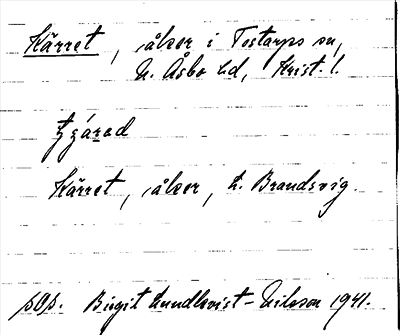 Kärret, åker i Tostarps sn,
N. Åsbo hd, Krist. l.
Kärret, åker, L. Brandsvig.
SOS. Birgit Lundkvist-Nilsson 1941.